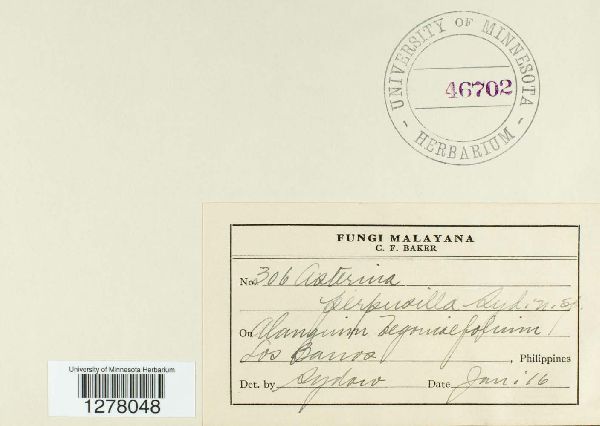 UNIVERSITY OF MINNESOTA
46702
- HERBARIUM -
FUNGI MALAYANA
C. F. BAKER
No. 306 Asterina
perpusilla Syd. n. sp.
On Alangium begoniaefolium
Los Banos, Philippines
Det. by Sydow Date Jan. 16
University of Minnesota Herbarium
1278048